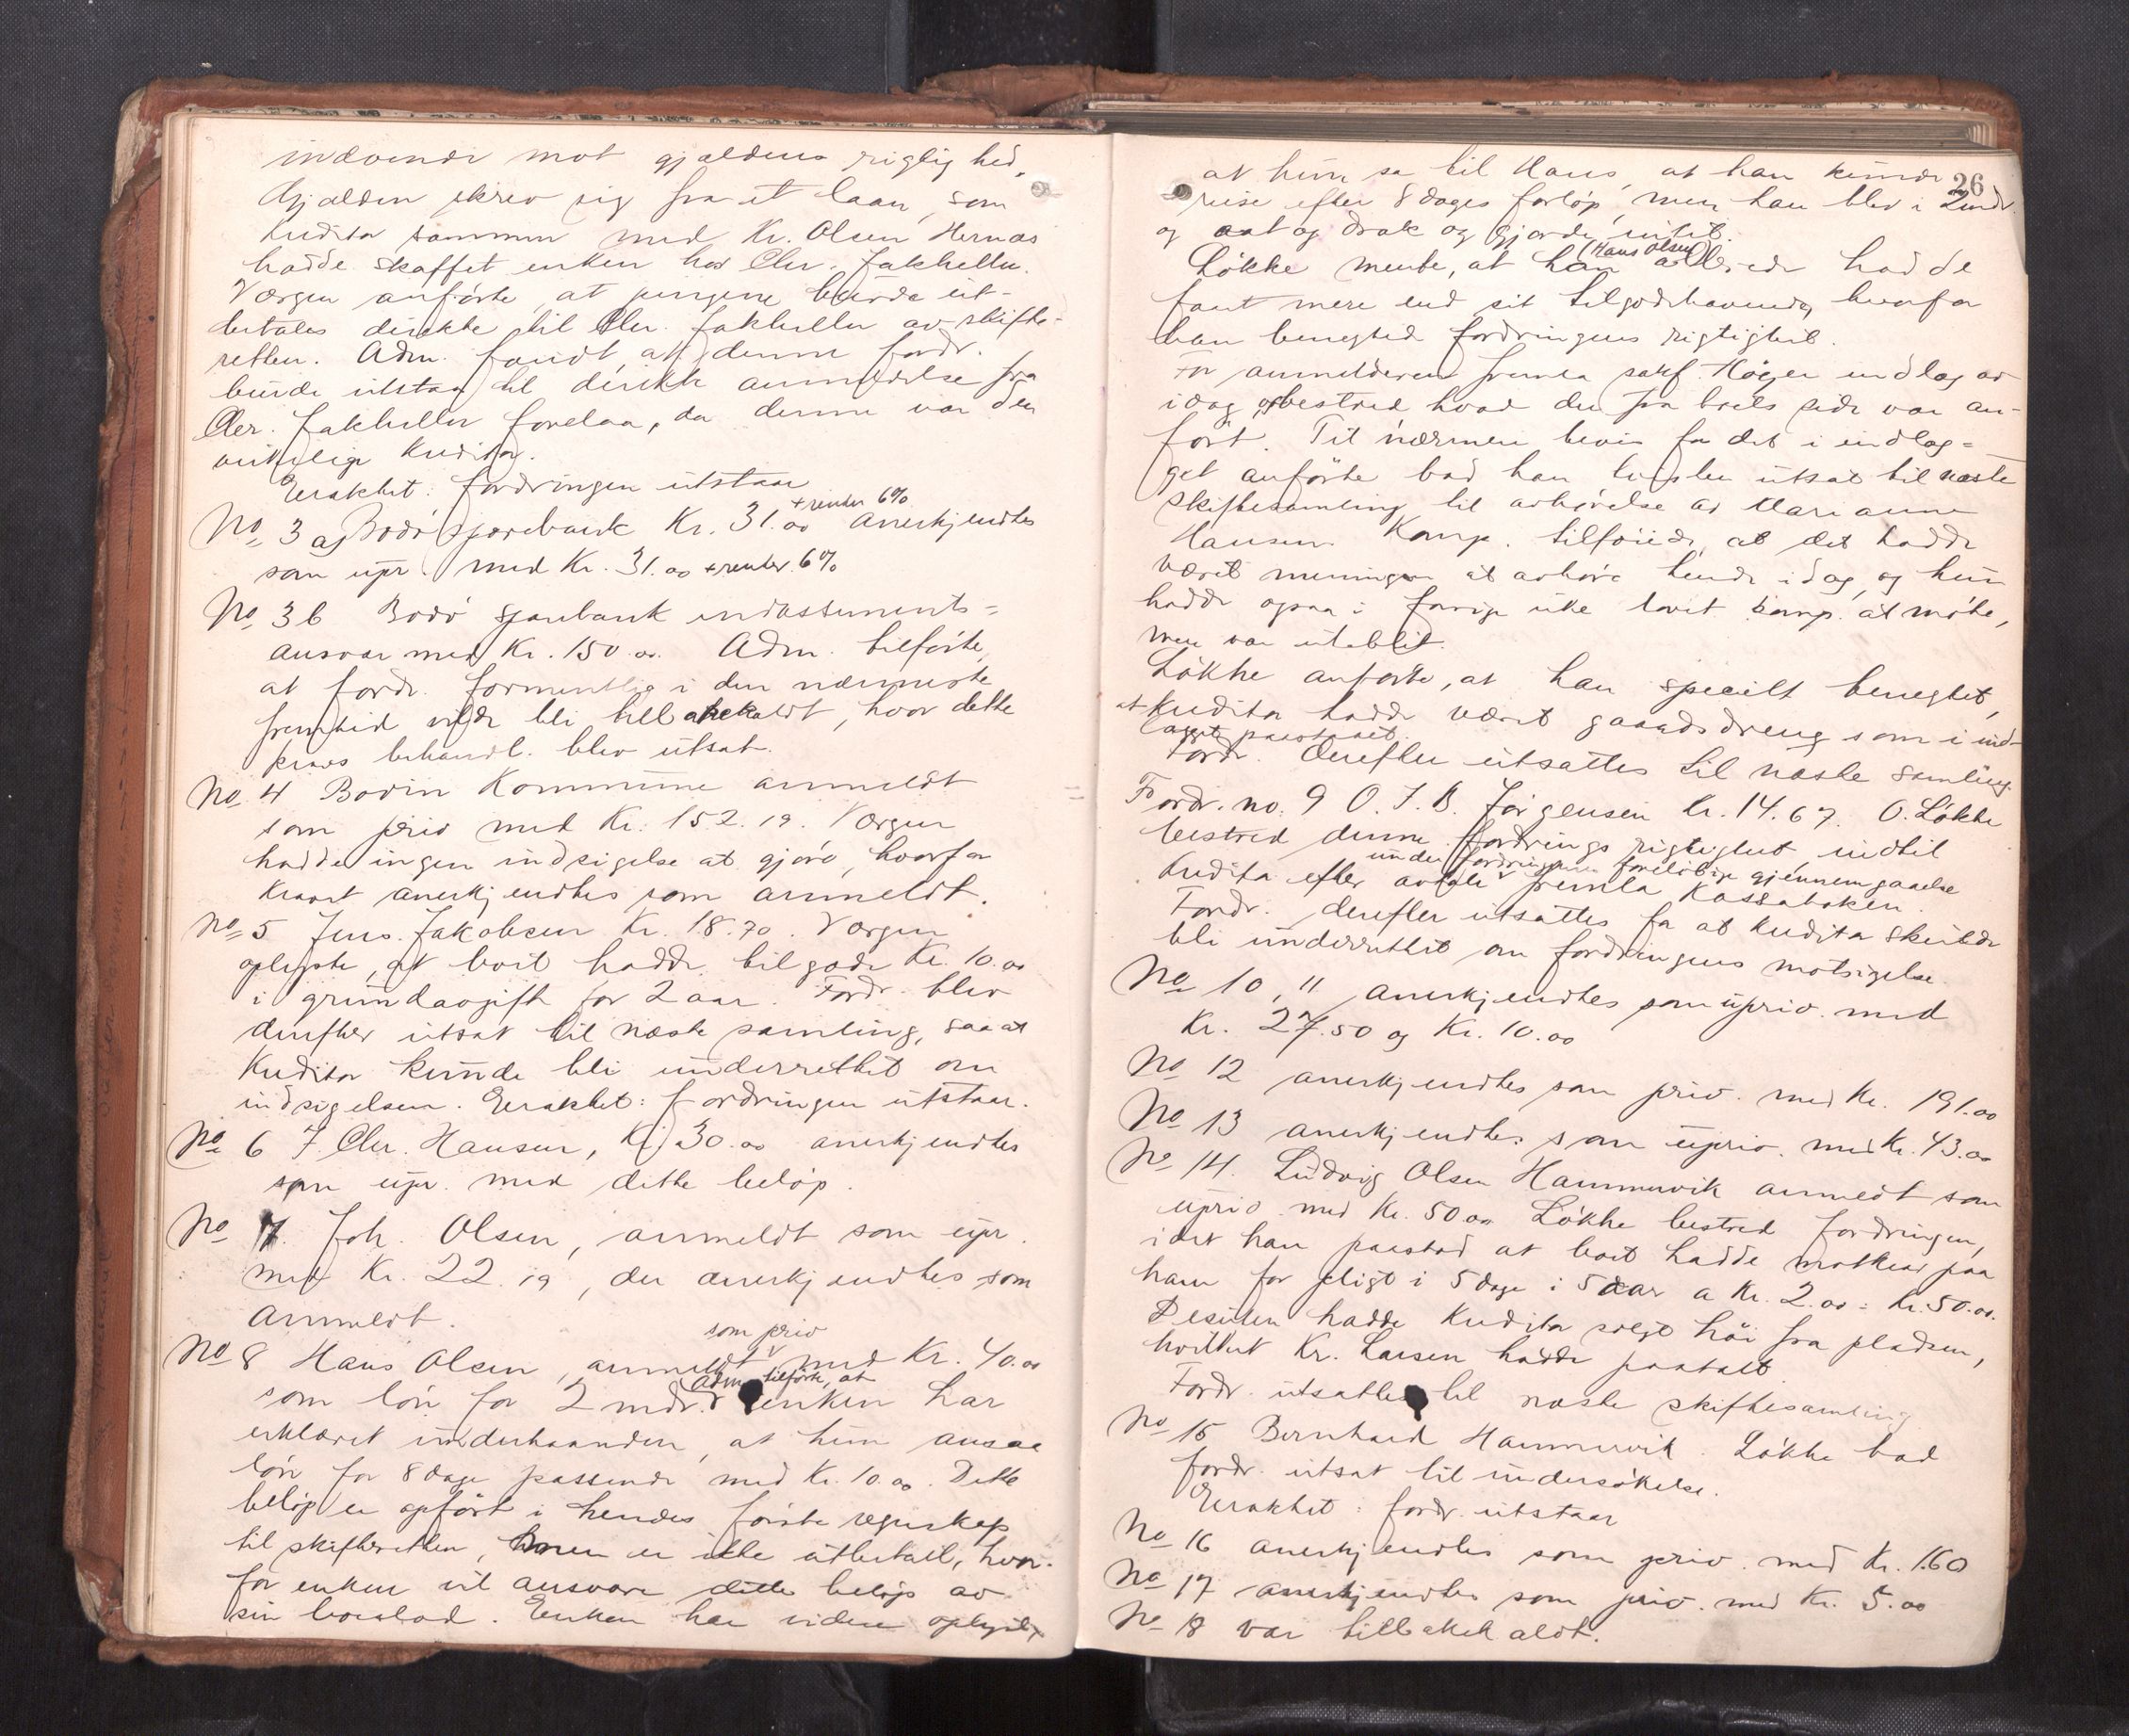 indvende mot gjældens rigtighed.
Gjælden skrev sig fra et laan, som
kreditor sammen med Kr. Olsen Hernæs
hadde skaffet enken hos Chr. Jakhelln.
Værgen anførte, at pengene burde ut-
betales direkte til Chr. Jakhelln av skifte-
retten. Adm. fandt, at denne fordr.
burde utstaa til direkte anmeldelse fra
Chr. Jakhelln forelaa, da denne var den
virkelige kreditor.
Eraktet: fordringen utstaar
No 3 a) Bodø sparebank Kr. 31.00 + renter 6% anerkjendtes
som upr. med Kr. 31.00 + renter 6%
No 3 b Bodø sparebank indossements-
ansvar med Kr. 150.00. Adm. tilførte,
at fordr. formentlig i den nærmeste
fremtid vilde bli tilbakekaldt, hvor dette
kravs behandl. blev utsat.
No 4 Bodin Kommune anmeldt
som priv med Kr. 152.19. Værgen
hadde ingen indsigelse at gjøre, hvorfor
kravet anerkjendtes som anmeldt.
No 5 Jens Jakobsen Kr. 18.70. Værgen
oplyste, at boet hadde tilgode Kr. 10.00
i grundavgift for 2 aar. Fordr. blev
derefter utsat til næste samling, saa at
kreditor kunde bli underrettet om
indsigelsen. Eraktet: fordringen utstaar.
No 6 F. Chr. Hansen, Kr. 30.00 anerkjendtes
som upr. med dette beløp.
No 7. Joh. Olsen, anmeldt som upr.
med Kr. 22.19, der anerkjendtes som
anmeldt.
No 8 Hans Olsen, anmeldt som priv med Kr. 40.00
som løn for 2 mdr. Adm. tilførte, at enken har
erklæret underhaanden, at hun ansaa
løn for 8 dage passende med Kr. 10.00. Dette
beløp er opført i hendes første regnskap
til skifteretten, men er ikke utbetalt, hvor-
for enken vil ansvare dette beløp av
sin boeslod. Enken har videre oplyst,
26
at hun sa til Hans, at han kunde
reise efter 8 dages forløp, men han blev i 2 mdr.
og aat og drak og gjorde intet.
Løkke mente, at han (Hans Olsen) allerede hadde
faat mere end sit tilgodehavende, hvorfor
han benegted fordringens rigtighet.
For anmelderen fremla sakf. Höyer indlæg av
idag og bestred hvad der fra boets side var an-
ført. Til nærmere bevis for det i indlæg-
get anførte bad han tvisten utsat til næste
skiftesamling til avhørelse av Marianne
Hansen. Komp. tilføiede, at det hadde
været meningen at avhøre hende idag, og hun
hadde ogsaa i forrige uke lovet komp. at møte,
men var uteblit.
Løkke anførte, at han specielt benegtet,
at kreditor hadde været gaardsdreng som i ind-
lægget paastaaet.
Fordr. derefter utsattes til næste samling.
Fordr. no. 9 O. J. B. Jørgensen Kr. 14.67. O. Løkke
bestred denne fordrings rigtighet indtil
kreditor efter avtale under fordringens foreløbige gjennemgaaelse fremla kassaboken.
Fordr. derefter utsattes for at kreditor skulde
bli underrettet om fordringens motsigelse.
No 10, 11 anerkjendtes som upriv. med
Kr. 27.50 og Kr. 10.00
No 12 anerkjendtes som priv. med Kr. 191.00
No 13 anerkjendtes som upriv. med Kr. 43.00
No 14. Ludvig Olsen Hammervik anmeldt som
upriv. med Kr. 50.00 Løkke bestred fordringen,
idet han paastod at boet hadde motkrav paa
ham for pligt i 5 dage i 5 aar a Kr. 2.00 = Kr. 50.00.
Desuten hadde kreditor solgt høi fra pladsen,
hvilket Kr. Larsen hadde paatalt.
Fordr. utsattes til næste skiftesamling
No 15 Bernhard Hammervik. Løkke bad
fordr. utsat til undersøkelse.
Eraktet: fordr. utstaar
No 16 anerkjendtes som priv. med Kr. 1.60
No 17 anerkjendtes som priv. med Kr. 5.00
No 18 var tilbakekaldt.